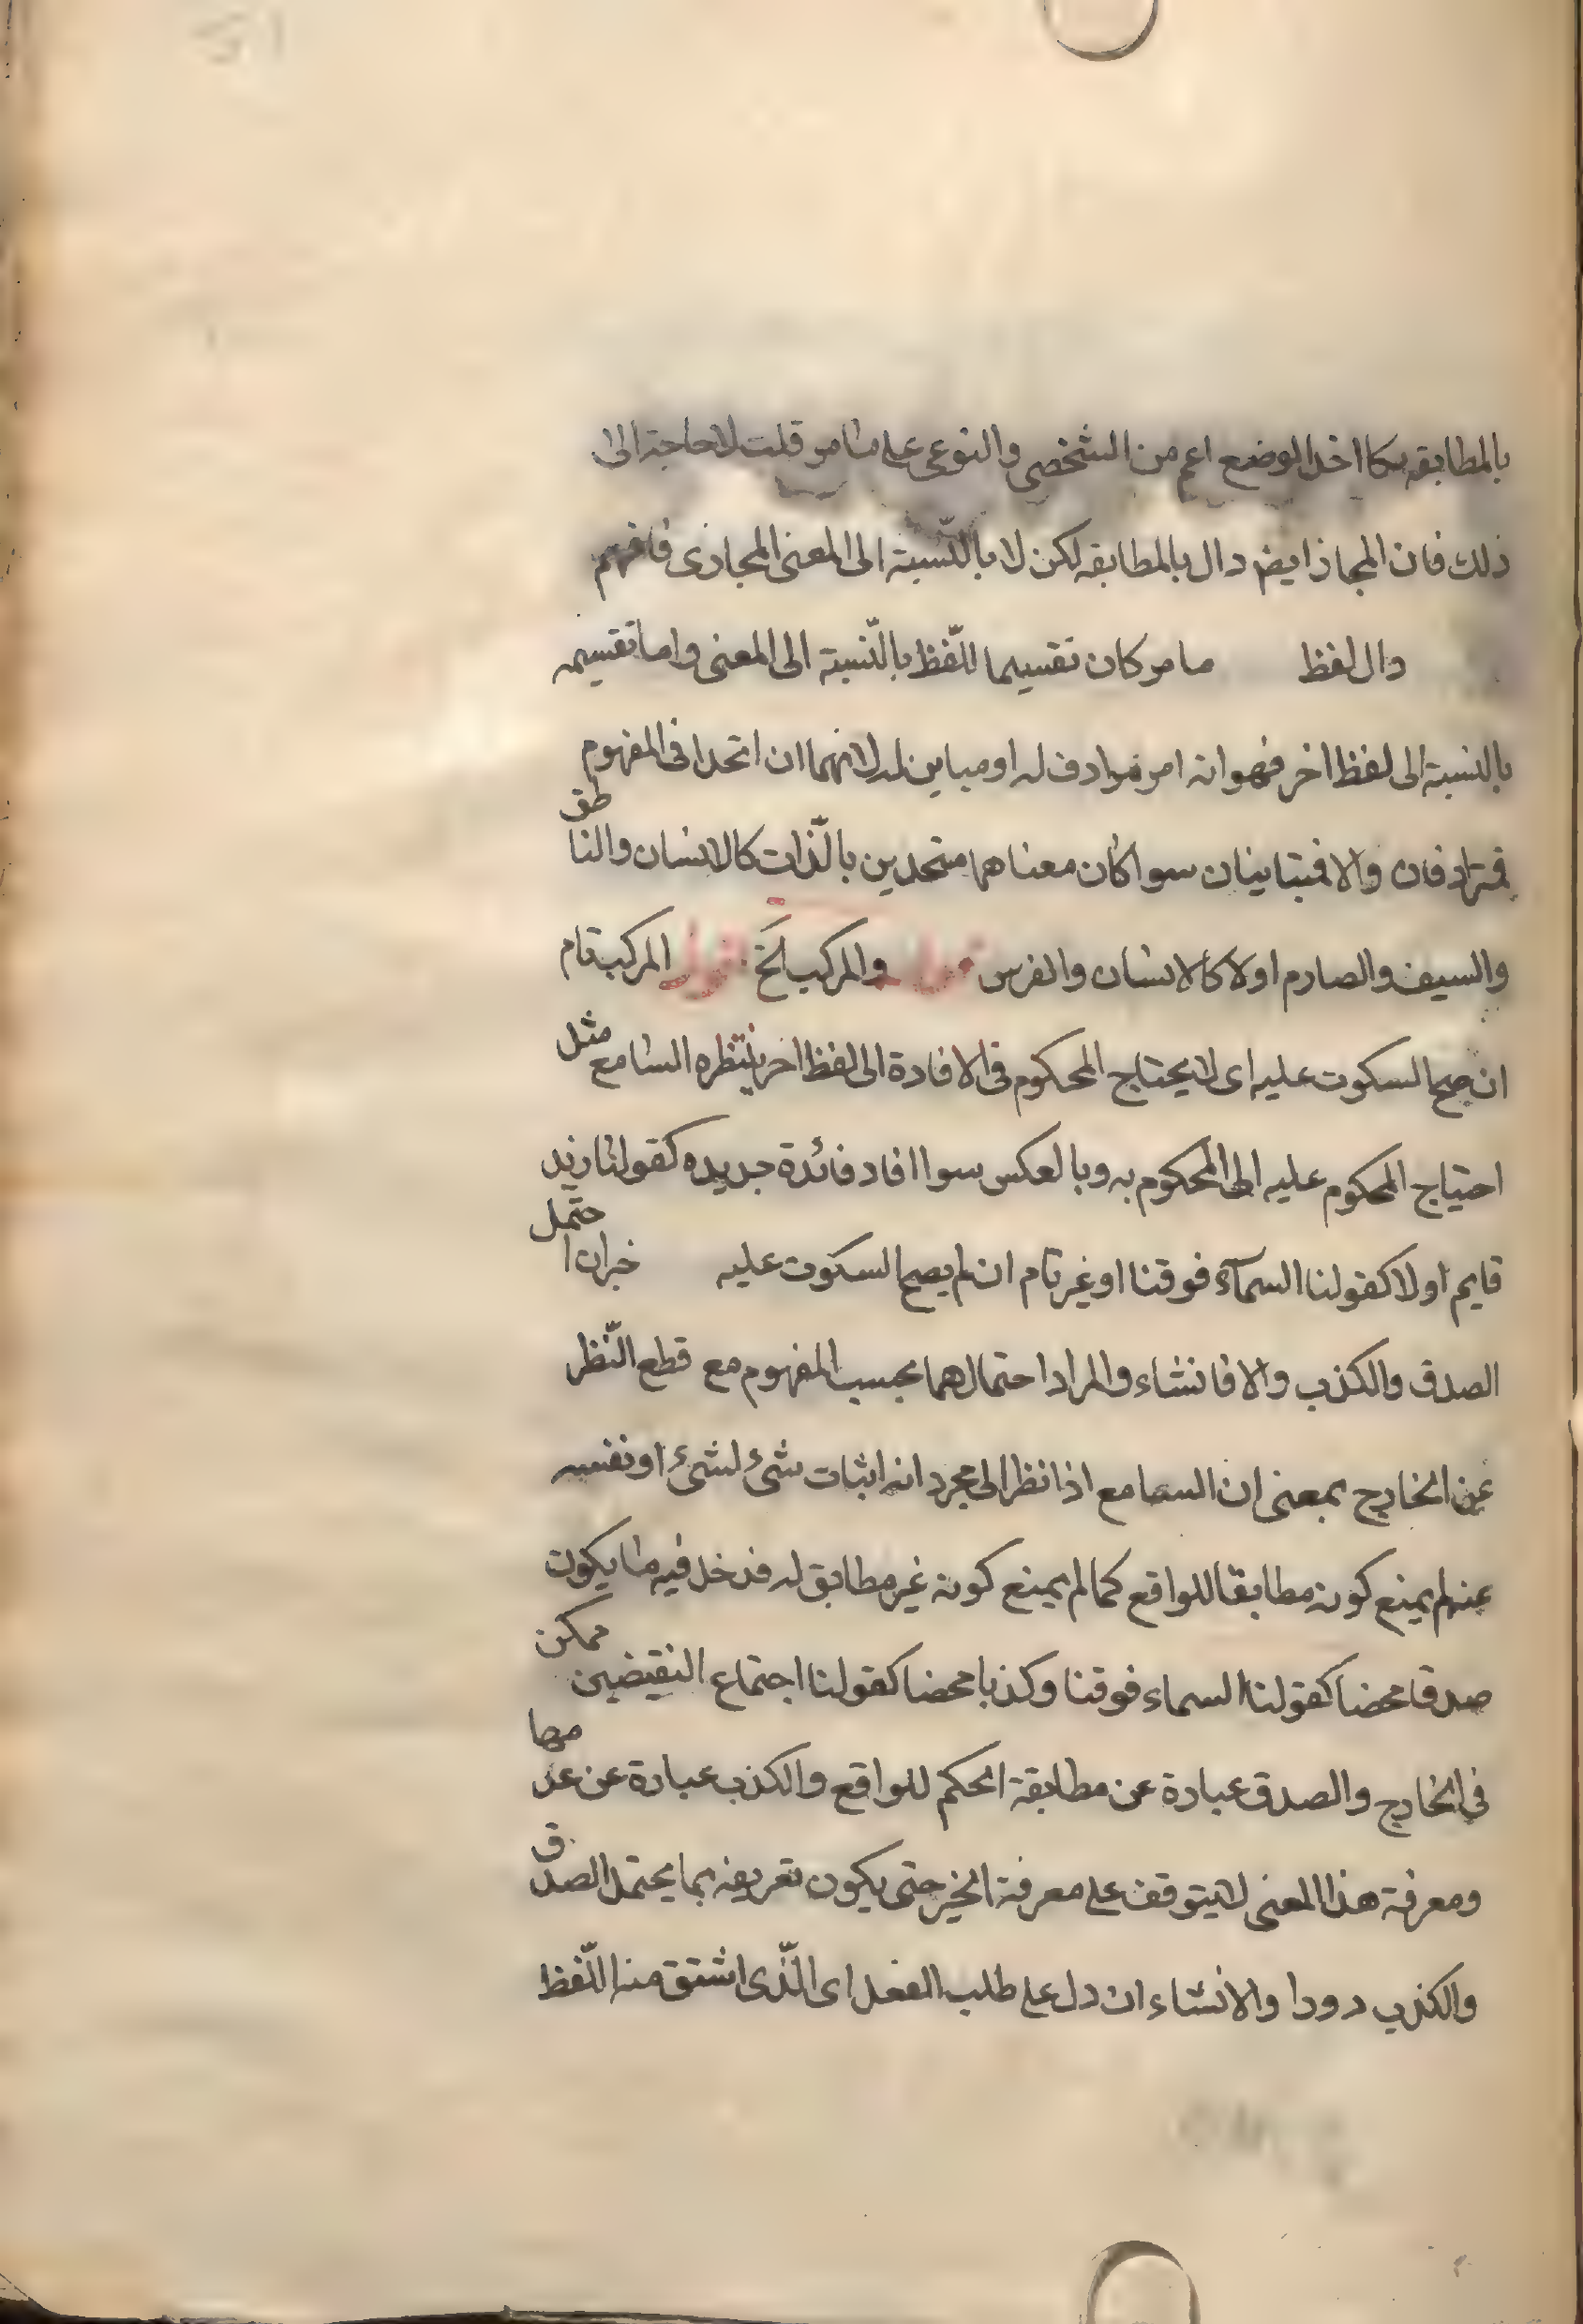 بالمطابقه كا اخذ الوضع اعم من الشخصي والنوعي على ما مر قلت لا حاجة الى
ذلك فان المجاز ايض دال بالمطابقه لكن لا بالنّسبة الى المعنى المجازى فافهم
دال لفظ ما مر كان تقسيما للّفظ بالنّسبة الى المعنى واما تقسيمه
بالنسبة الى لفظ اخر فهو انه امر مرادف له او مباين له لانهما ان اتحدا فى المفهوم
فمترادفان والا فمتباينان سوا كان معناهما متحدين بالّذات كالانسان والناطق
والسيف والصارم اولا كالانسان والفرس قوله والمركب الخ اقول المركب تام
ان صح السكوت عليه اى لا يحتاج المحكوم فى الافادة الى لفظ اخر ينتظره السامع مثل
احتياج المحكوم عليه الى المحكوم به وبالعكس سوا افاد فائدة جديده كقولنا زيد
قايم اولا كقولنا السمآء فوقنا او غير تام ان لم يصح السكوت عليه خبر ان احتمل
الصدق والكذب والا فانشاء والمراد احتمالهما بحسب المفهوم مع قطع النّظر
عن الخارج بمعنى ان السامع اذا نظر الى مجرد انه اثبات شئ لشئ او نفيه
عنه لم يمنع كونه مطابقا للواقع كما لم يمنع كونه غير مطابق له فدخل فيه ما يكون
صدقا محضا كقولنا السماء فوقنا وكذبا محضا كقولنا اجتماع النقيضين ممكن
في الخارج والصدق عبارة عن مطابقة الحكم للواقع والكذب عبارة عن عدمها
ومعرفة هذا المعنى لا يتوقف على معرفة الخبر حتى يكون تعريفه بما يحتمل الصدق
والكذب دورا والانشاء ان دل على طلب الفعل اى الّذى اشتق منه اللّفظ